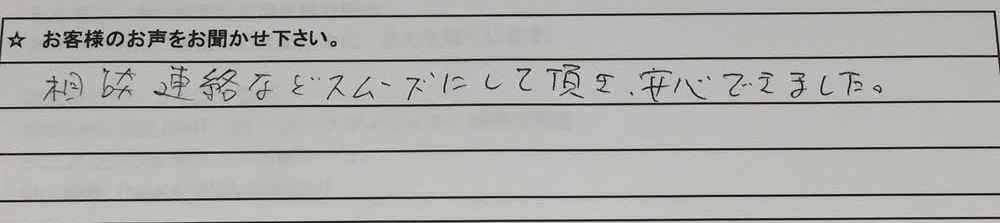 ☆ お客様のお声をお聞かせ下さい。
相談 連絡などスムーズにして頂き、安心できました。